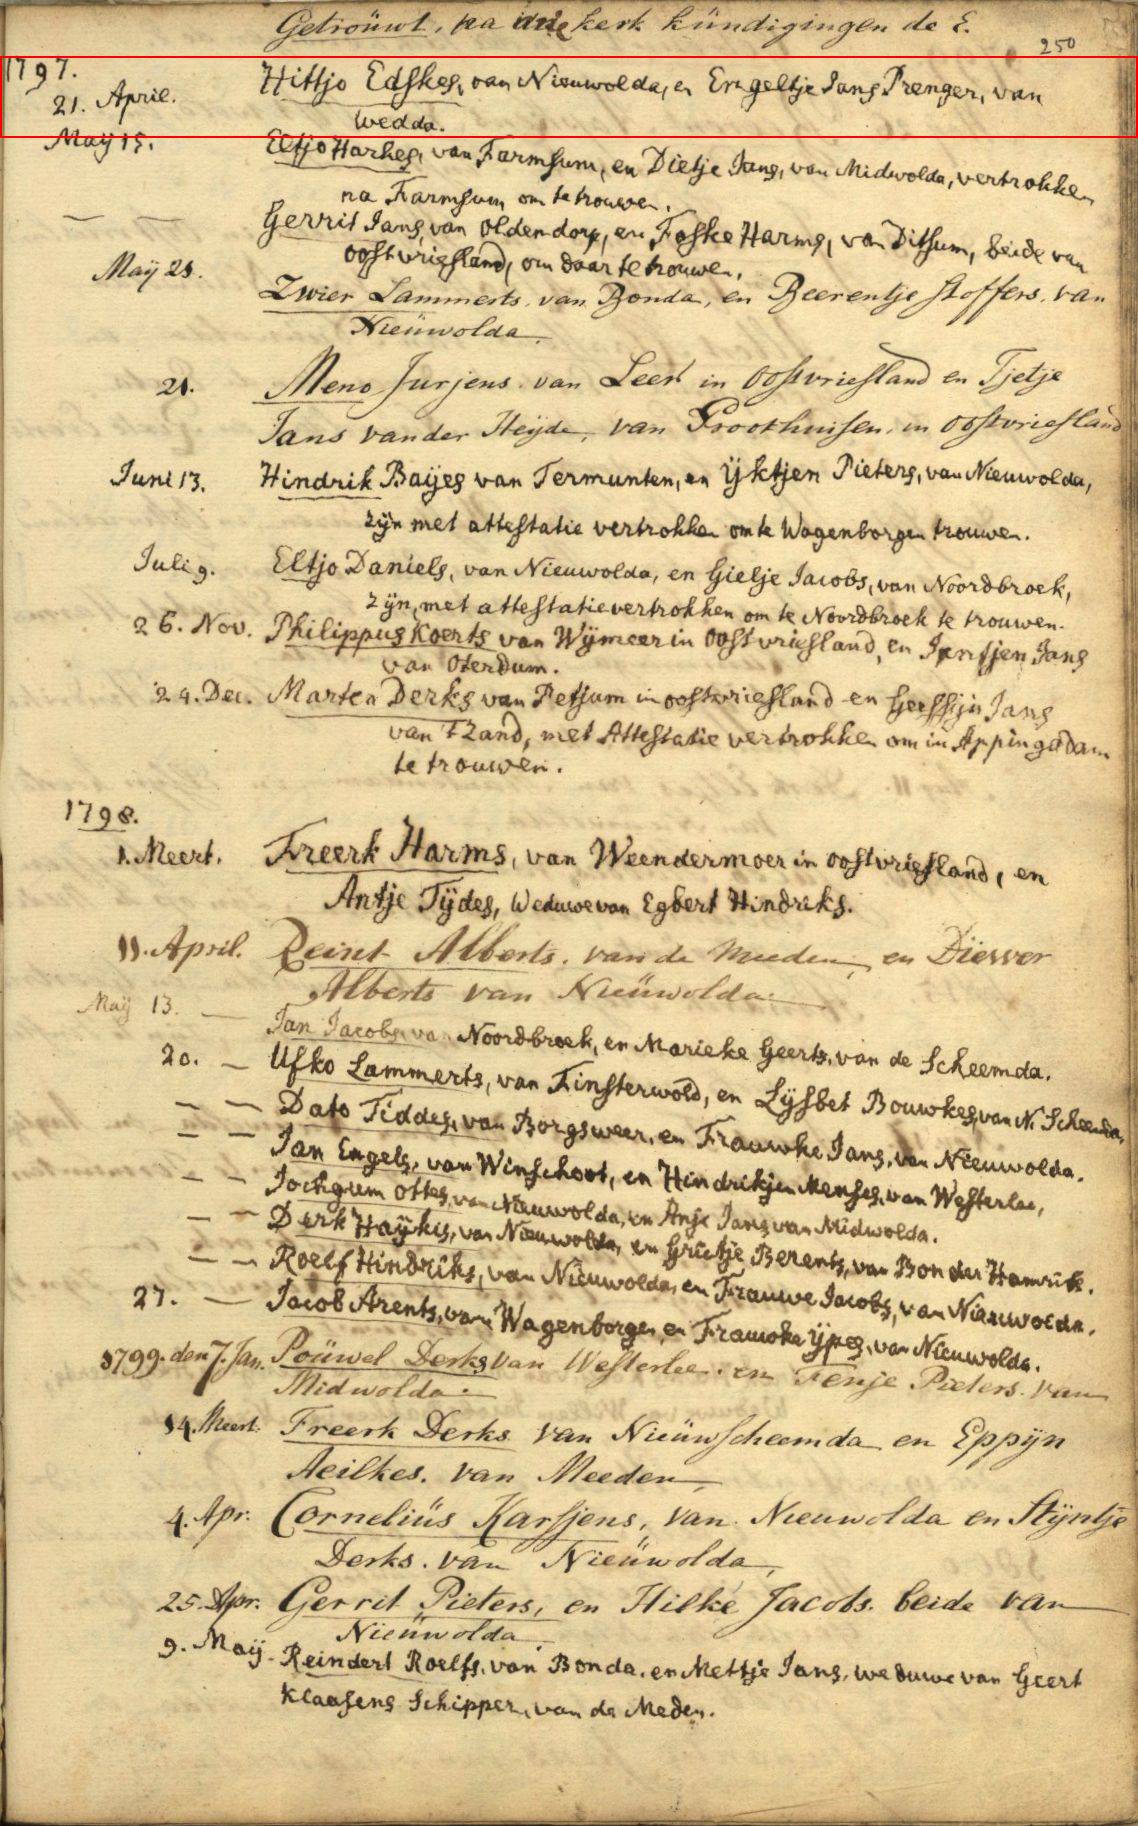 Getroüwt, na drie kerk kündigingen de E.
250
1797.
21. April. Hittjo Edskes, van Nieuwolda, en Engeltje Jans Prenger, van
Wedda.
Maÿ 15. Eltjo Harkes, van Farmsum, en Dietje Jans, van Midwolda, vertrokken
na Farmsum om te trouwen.
— — Gerrit Jans van Oldendorp, en Foske Harms, van Ditsum, beide van
Oostvriesland, om daar te trouwen.
Maÿ 21. Zwier Lammerts van Bonda, en Beerentje Stoffers van
Nieüwolda.
21. Meno Jurjens van Leer in Oostvriesland en Tjetje
Jans vander Heÿde, van Groothuisen in Oostvriesland
Juni 13. Hindrik Baÿes van Termunten, en Ÿktjen Pieters, van Nieuwolda,
zÿn met attestatie vertrokken om te Wagenborgen trouwen.
Juli 9. Eltjo Daniels, van Nieuwolda, en Gielje Jacobs, van Noordbroek,
zÿn, met attestatie vertrokken om te Noordbroek te trouwen.
26. Nov. Philippus Koerts van Wÿmeer in Oostvriesland, en Jantjen Jans
van Oterdum.
24. Dec. Marten Derks van Petsum in oostvriesland en Geessijn Jans
van 't Zand, met Attestatie vertrokken om in Appingadam
te trouwen.
1798.
1. Meert. Freerk Harms, van Weendermoer in oostvriesland, en
Antje Tÿdes, Weduwe van Egbert Hindriks.
11. April. Reint Alberts. van de Meeden, en Diewer
Alberts van Nieüwolda
Maÿ 13. — Jan Jacobs van Noordbroek, en Marieke Geerts, van de Scheemda.
20. — Ufko Lammerts, van Finsterwold, en Lÿsbet Bouwkes, van N. Scheemda,
— — Dato Tiddes, van Borgsweer, en Frauwke Jans, van Nieuwolda.
— — Jan Engels, van Winschoot, en Hindrikjen Menses, van Westerlee,
— — Jochgum Ottes, van Nieuwolda, en Anje Jans van Midwolda.
— — Derk Haÿkes, van Nieuwolda, en Grietje Berents, van Bonder Hamrik.
— — Roelf Hindriks, van Nieuwolda, en Frauwe Jacobs, van Nieuwolda.
27. — Jacob Arents, van Wagenborgen, en Frauwke Ÿpes, van Nieuwolda.
1799. den 7. Jan. Poüwel Derks van Westerlee. en Fenje Pieters. van
Midwolda.
14. Meert. Freerk Derks van Nieüwscheemda en Eppijn
Aeilkes. van Meeden
4. Apr. Cornelius Karssjens, van Nieuwolda en Stÿntje
Derks. van Nieüwolda,
25. Apr. Gerrit Pieters, en Hilke Jacobs. beide van
Nieüwolda.
9. Maÿ. Reindert Roelfs, van Bonda, en Mettje Jans, weduwe van Geert
Klaasens Schipper, van de Meden.